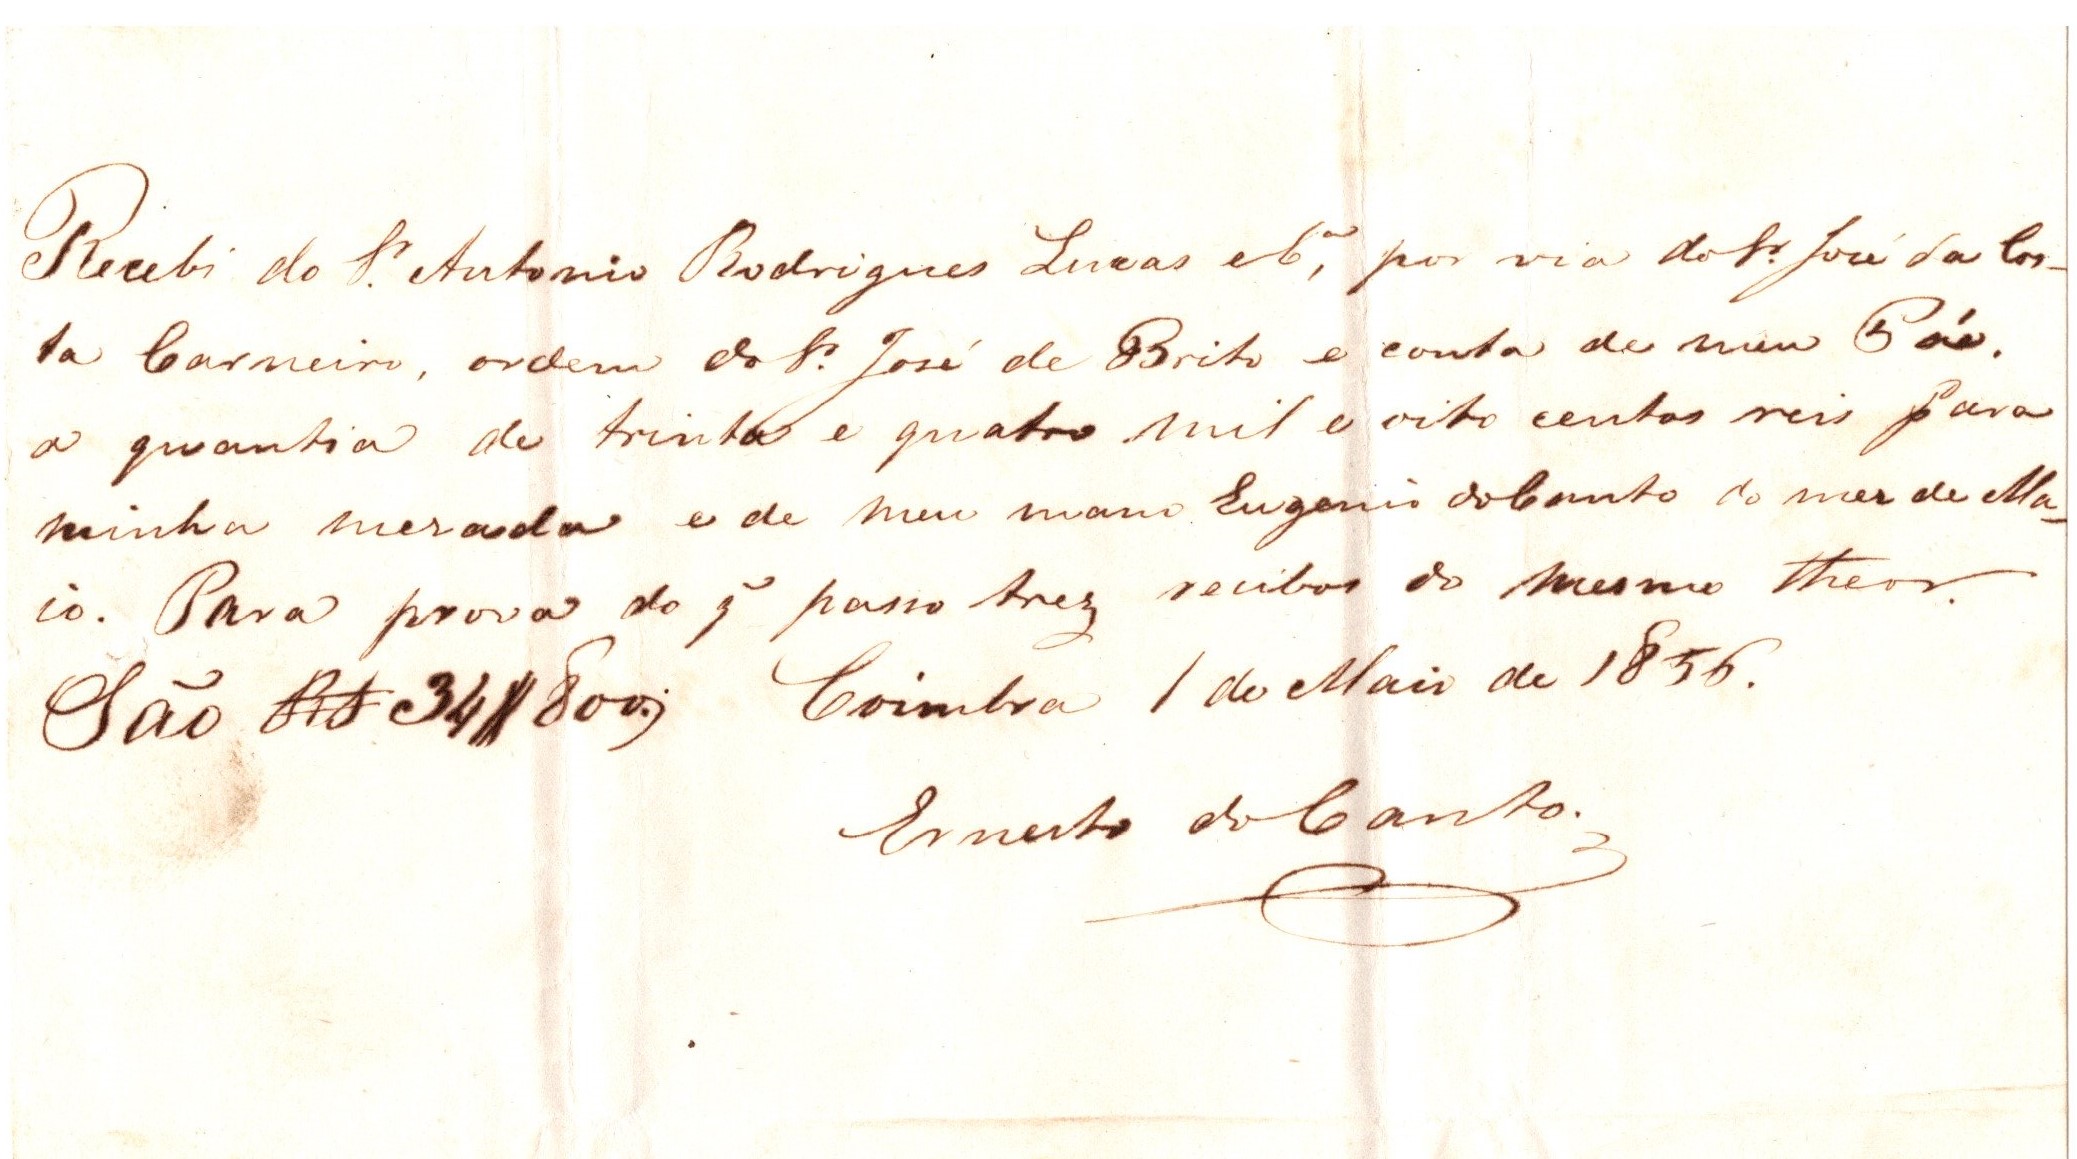 Recebi do Sr. Antonio Rodrigues Lucas e Cª, por via do Sr. José da Cos-
ta Carneiro, ordem do Sr. José de Brito e conta de meu Páe.
a quantia de trinta e quatro mil e oito centos reis para
minha mezada e de meu mano Eugenio do Canto do mez de Ma-
io. Para prova do q̃ passo trez recibos do mesmo theor.
São 34$800; Coimbra 1 de Maio de 1856.
Ernesto do Canto.